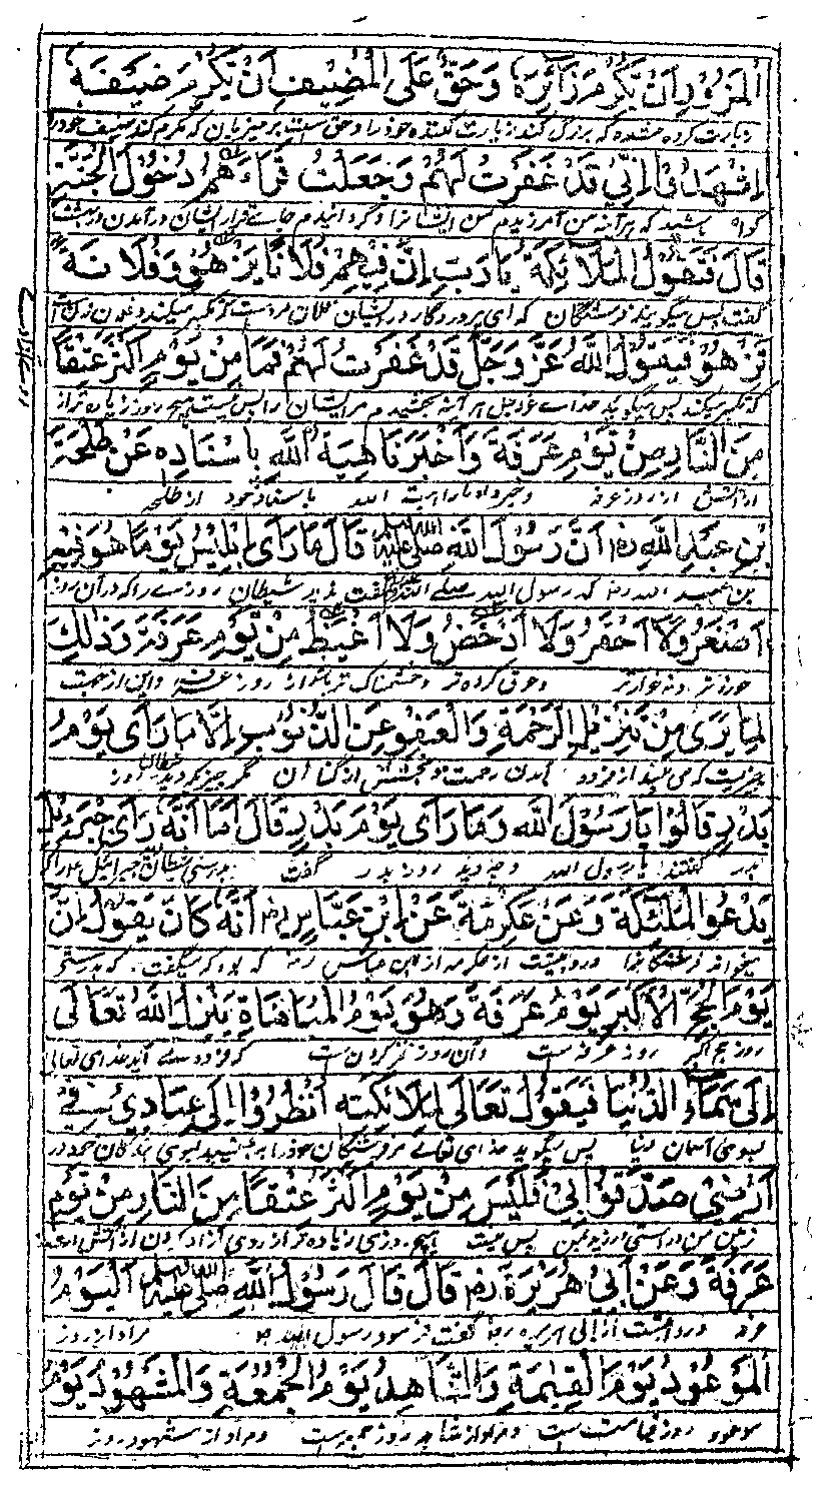 الْمَزُوْرِ اَنْ يُّكْرِمَ زَائِرَهُ وَحَقٌّ عَلَى الْمُضِيْفِ اَنْ يُّكْرِمَ ضَيْفَهُ
زیارت کرده شده که بزرگ کند زیارت کننده خود را و حق است بر میزبان که مکرم کند ضیف خود را
اِشْهَدُوْا اِنِّيْ قَدْ غَفَرْتُ لَهُمْ وَجَعَلْتُ قِرَاءَهُمْ دُخُوْلَ الْجَنَّةِ
گواه باشید که هرآینه من آمرزیدم من ایشانرا و گردانیدم جاے قرار ایشان در آمدن در بهشت
قَالَ فَتَقُوْلُ الْمَلَائِكَةُ يَا رَبِّ اِنَّ فِيْهِمْ فُلَانًا يَزْهُوْ وَفُلَانَةً
گفت پس میگویند فرشتگان که ای پروردگار در ایشان فلان مردست که تکبر میکند و فلان زن است
تَزْهُوْ فَيَقُوْلُ اللّٰهُ عَزَّ وَجَلَّ قَدْ غَفَرْتُ لَهُمْ فَمَا مِنْ يَوْمٍ اَكْثَرَ عِتْقًا
که تکبر میکند پس میگوید خداے عزوجل هر آئنه بخشیدم مر ایشان را پس نیست هیچ روز زیاده تر از
مِنَ النَّارِ مِنْ يَوْمِ عَرَفَةَ وَاَخْبَرَنَا هِبَةُ اللّٰهِ بِاِسْنَادِهٖ عَنْ طَلْحَةَ
از آتش از روز عرفه وخبر داد مارا هبت الله باسناد خود از طلحه
بْنِ عُبَيْدِ اللّٰهِ رض اَنَّ رَسُوْلَ اللّٰهِ صَلَّى اللّٰهُ عَلَيْهِ وَسَلَّمَ قَالَ مَا رَاٰى اِبْلِيْسُ يَوْمًا هُوَ فِيْهِ
بن عبید الله رضه که رسول الله صلے الله گفت ندید شیطان روزے را که در آن روز
اَصْغَرُ وَلَا اَحْقَرُ وَلَا اَدْحَضُ وَلَا اَغْيَظُ مِنْ يَوْمِ عَرَفَةَ وَذٰلِكَ
خوردتر ونه خوارتر وحق کرده تر وخشمناک تر باشد از روز عرفه واین از جهت
لِمَا يَرٰى مِنْ تَنْزِيْلِ الرَّحْمَةِ وَالْعَفْوِ عَنِ الذُّنُوْبِ اِلَّا مَا رَاٰى يَوْمَ
چیزیست که می بیند از فرود آمدن رحمت و بخشش از گناهان مگر چیزیکه دید شیطان روز
بَدْرٍ قَالُوْا يَا رَسُوْلَ اللّٰهِ وَمَا رَاٰى يَوْمَ بَدْرٍ قَالَ اَمَا اَنَّهٗ رَاٰى جِبْرَئِيْلَ
بدر گفتند یا رسول الله وچه دید روز بدر گفت بدرستی شیطان دید جبرائیل را که
يَدْعُو الْمَلٰئِكَةَ وَعَنْ عِكْرِمَةَ عَنِ ابْنِ عَبَّاسٍ رض اَنَّهٗ كَانَ يَقُوْلُ اِنَّ
میخواند فرشتگانرا وروایتست از عکرمه از ابن عباس رضه که بود که میگفت که بدرستی
يَوْمَ الْحَجِّ الْاَكْبَرِ يَوْمُ عَرَفَةَ وَهُوَ يَوْمُ الْمُبَاهَاةِ يَنْزِلُ اللّٰهُ تَعَالٰى
روز حج اکبر روز عرفه است وآن روز فخر کردن است که فرود مے آید خدای تعالی
اِلٰى سَمَاءِ الدُّنْيَا فَيَقُوْلُ تَعَالٰى لِمَلَائِكَتِهٖ اُنْظُرُوْا اِلٰى عِبَادِيْ فِيْ
بسوی آسمان دنیا پس میگوید خدای تعالے مر فرشتگان خود را به بینید بسوی بندگان من در
اَرْضِيْ صَدَّقُوْا بِيْ فَلَيْسَ مِنْ يَوْمٍ اَكْثَرَ عِتْقًا مِنَ النَّارِ مِنْ يَوْمِ
زمین من پس نیست هیچ روزی زیاده تر از روی آزاد کردن از آتش از
عَرَفَةَ وَعَنْ اَبِيْ هُرَيْرَةَ رض قَالَ قَالَ رَسُوْلُ اللّٰهِ صَلَّى اللّٰهُ عَلَيْهِ وَسَلَّمَ اَلْيَوْمُ
عرفه وروایتست از ابی هریره رضه گفت فرمود رسول الله مراد از روز
الْمَوْعُوْدُ يَوْمُ الْقِيٰمَةِ وَالشَّاهِدُ يَوْمُ الْجُمُعَةِ وَالْمَشْهُوْدُ يَوْمُ
موعود روز قیامت است ومراد از شاهد روز جمعه است ومراد از مشهود روز